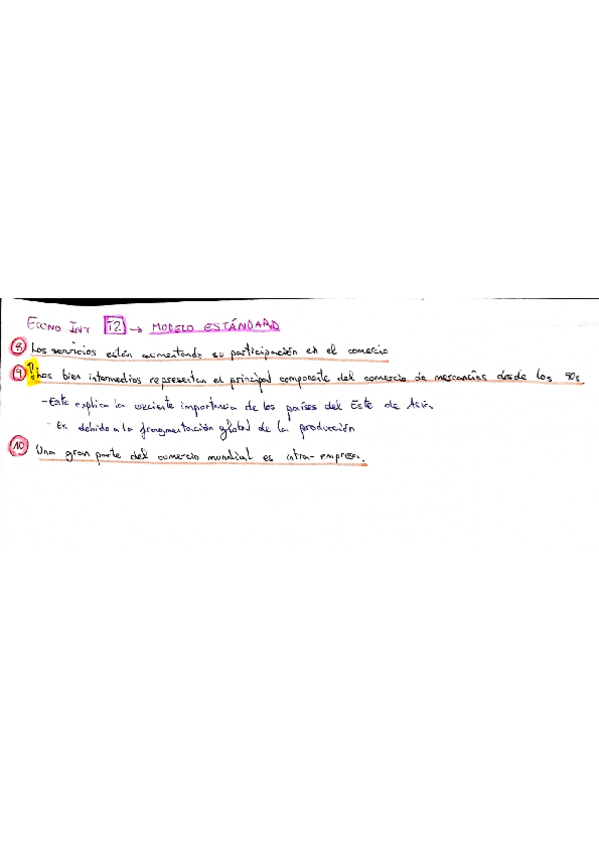 ECONO INT T2 → MODELO ESTÁNDARD
8 Los servicios están aumentando su participación en el comercio
9 ! Los bien intermedios representan el principal componente del comercio de mercancías desde los 80s.
- Este explica la creciente importancia de los países del Este de Asia.
- Es debido a la fragmentación global de la producción
10 Una gran parte del comercio mundial es intra-empresa.